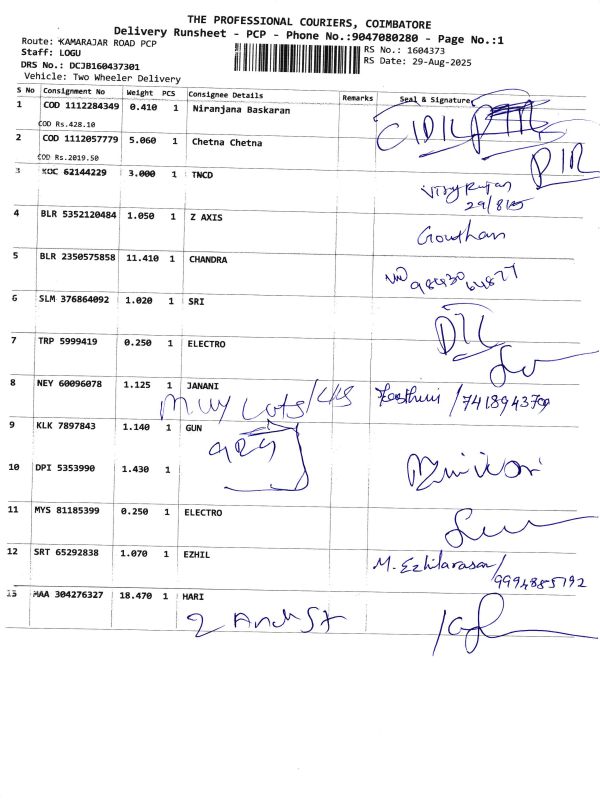 THE PROFESSIONAL COURIERS, COIMBATORE
Delivery Runsheet - PCP - Phone No.:9047080280 - Page No.:1
Route: KAMARAJAR ROAD PCP
Staff: LOGU
RS No.: 1604373
DRS No.: DCJB160437301
RS Date: 29-Aug-2025
Vehicle: Two Wheeler Delivery
S No Consignment No Weight PCS Consignee Details Remarks Seal & Signature
1 COD 1112284349 0.410 1 Niranjana Baskaran
COD Rs.428.10
2 COD 1112057779 5.060 1 Chetna Chetna
COD Rs.2019.50
3 KOC 62144229 3.000 1 TNCD
29/8/25
4 BLR 5352120484 1.050 1 Z AXIS
Gowtham
5 BLR 2350575858 11.410 1 CHANDRA
98430 64877
6 SLM 376864092 1.020 1 SRI
7 TRP 5999419 0.250 1 ELECTRO
8 NEY 60096078 1.125 1 JANANI
/7418943709
9 KLK 7897843 1.140 1 GUN
10 DPI 5353990 1.430 1
11 MYS 81185399 0.250 1 ELECTRO
12 SRT 65292838 1.070 1 EZHIL M. Ezhilarasan/
9994885792
13 MAA 304276327 18.470 1 HARI